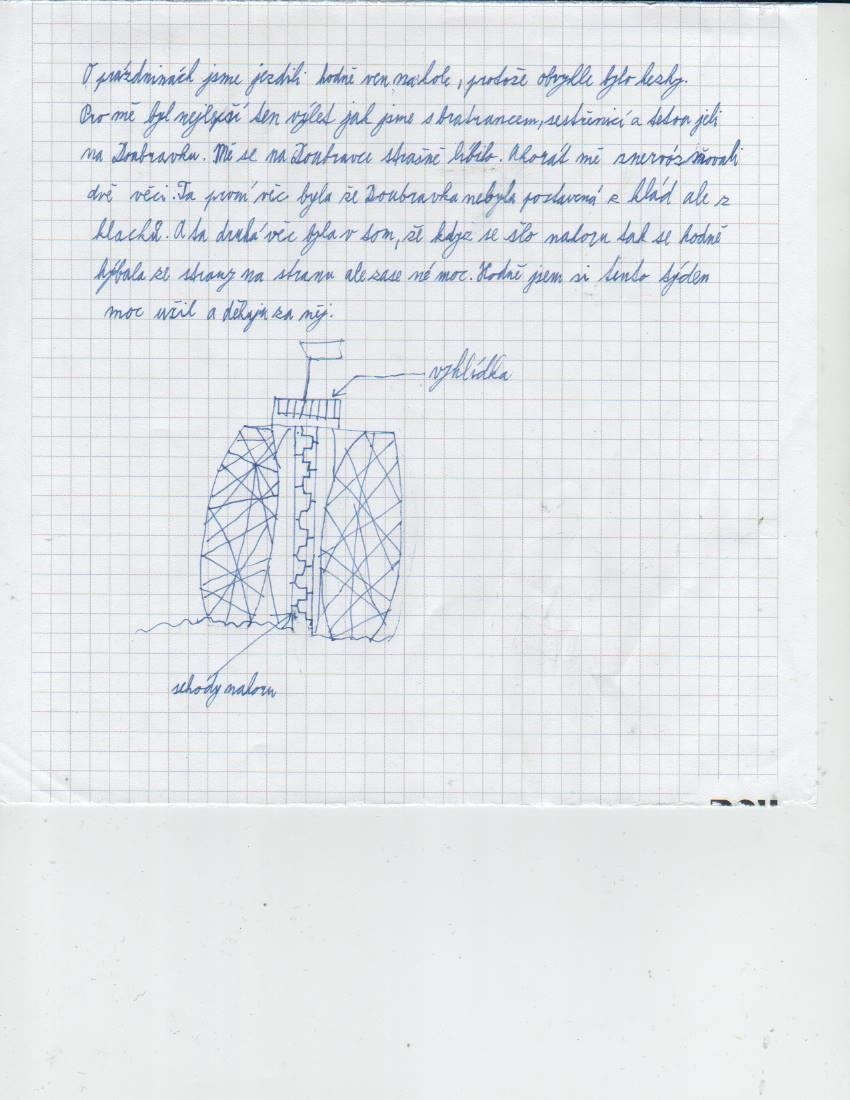 O prázdninách jsme jezdili hodně ven na kole, protože obvykle bylo hezky.
Pro mě byl nejlepší ten výlet jak jsme s bratrancem, sestřenicí a tetou jeli
na Doubravku. Mě se na Doubravce strašně líbilo. Akorát mě znervózňovali
dvě věci. Ta první věc byla že Doubravka nebyla postavená z klád ale z
klacků. A ta druhá věc byla v tom, že když se šlo nahoru tak se hodně
hýbala ze strany na stranu ale zase né moc. Hodně jsem si tento týden
moc užil a děkuju za něj.
vyhlídka
schody nahoru